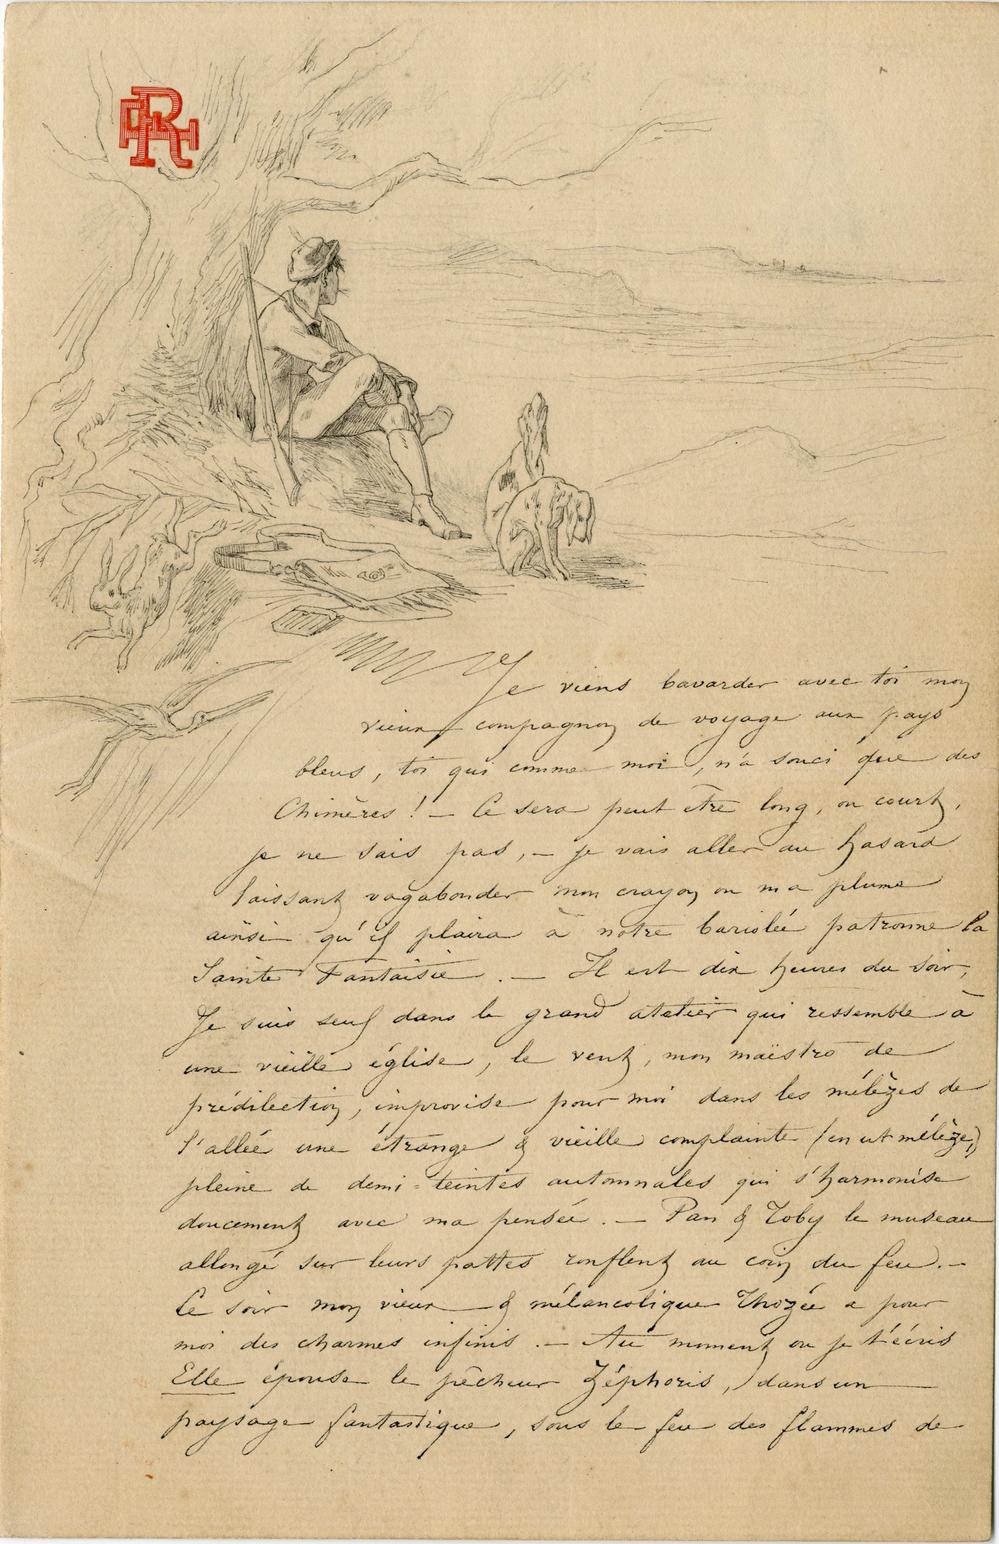 HR
Je viens bavarder avec toi mon
vieux compagnon de voyage aux pays
bleus, toi qui comme moi, n'a souci que des
Chimères ! — Ce sera peut être long, ou court,
je ne sais pas, — je vais aller au hasard
laissant vagabonder mon crayon ou ma plume
ainsi qu'il plaira à notre bariolée patronne la
Sainte Fantaisie. — Il est dix heures du soir,
Je suis seul dans le grand atelier qui ressemble à
une vieille église, le vent, mon maëstro de
prédilection, improvise pour moi dans les mélèzes de
l'allée une étrange & vieille complainte (en ut mélèze,)
pleine de demi-teintes automnales qui s'harmonise
doucement avec ma pensée. — Pan & Toby le museau
allongé sur leurs pattes ronflent au coin du feu. —
Ce soir mon vieux & mélancolique Thozée a pour
moi des charmes infinis. — Au moment ou je t'écris
Elle épouse le pêcheur Zéphoris, dans un
paysage fantastique, sous le feu des flammes de